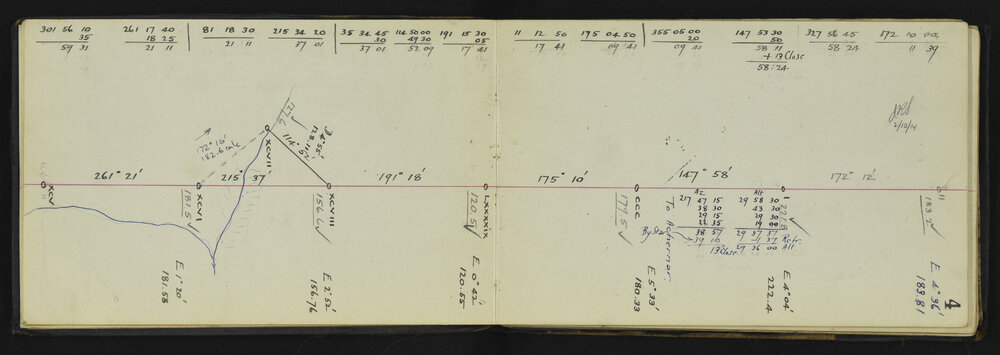 301 56 10
35
59 31
261 17 40
18 25
21 11
81 18 30
21 11
215 34 20
37 01
35 34 45
30
37 01
114 50 00
49 30
52 09
191 15 30
05
17 41
11 12 50
17 41
175 04 50
09 41
355 05 00
20
09 41
147 53 30
50
58 11
+ 13 Close
58.24
327 56 45
58 24
172 10 00
11 39
2/10/14
127.6
172° 16'
182.6 calc
XCVII
114°
261° 21'
215° 37'
191° 18'
175° 10'
147° 58'
172° 12'
XCV
XCVI
181.5
XCVIII
156.6
LXXXXIX
120.5
CCC
179.5
I
221.8
II
183.2
To Achernor.
Az
217 47 15
38 30
29 15
22 35
38 57
39 10
By Sta
13 Close
Alt
29 58 30
43 30
29 30
19 00
29 37 37
1 37 Refr.
29 36 00 Alt.
E 1° 20'
181.58
E 2° 52'
156.76
E 0° 42'
120.55
E 5° 33'
180.33
E 4° 04'
222.4
E 4° 36'
183.81
4